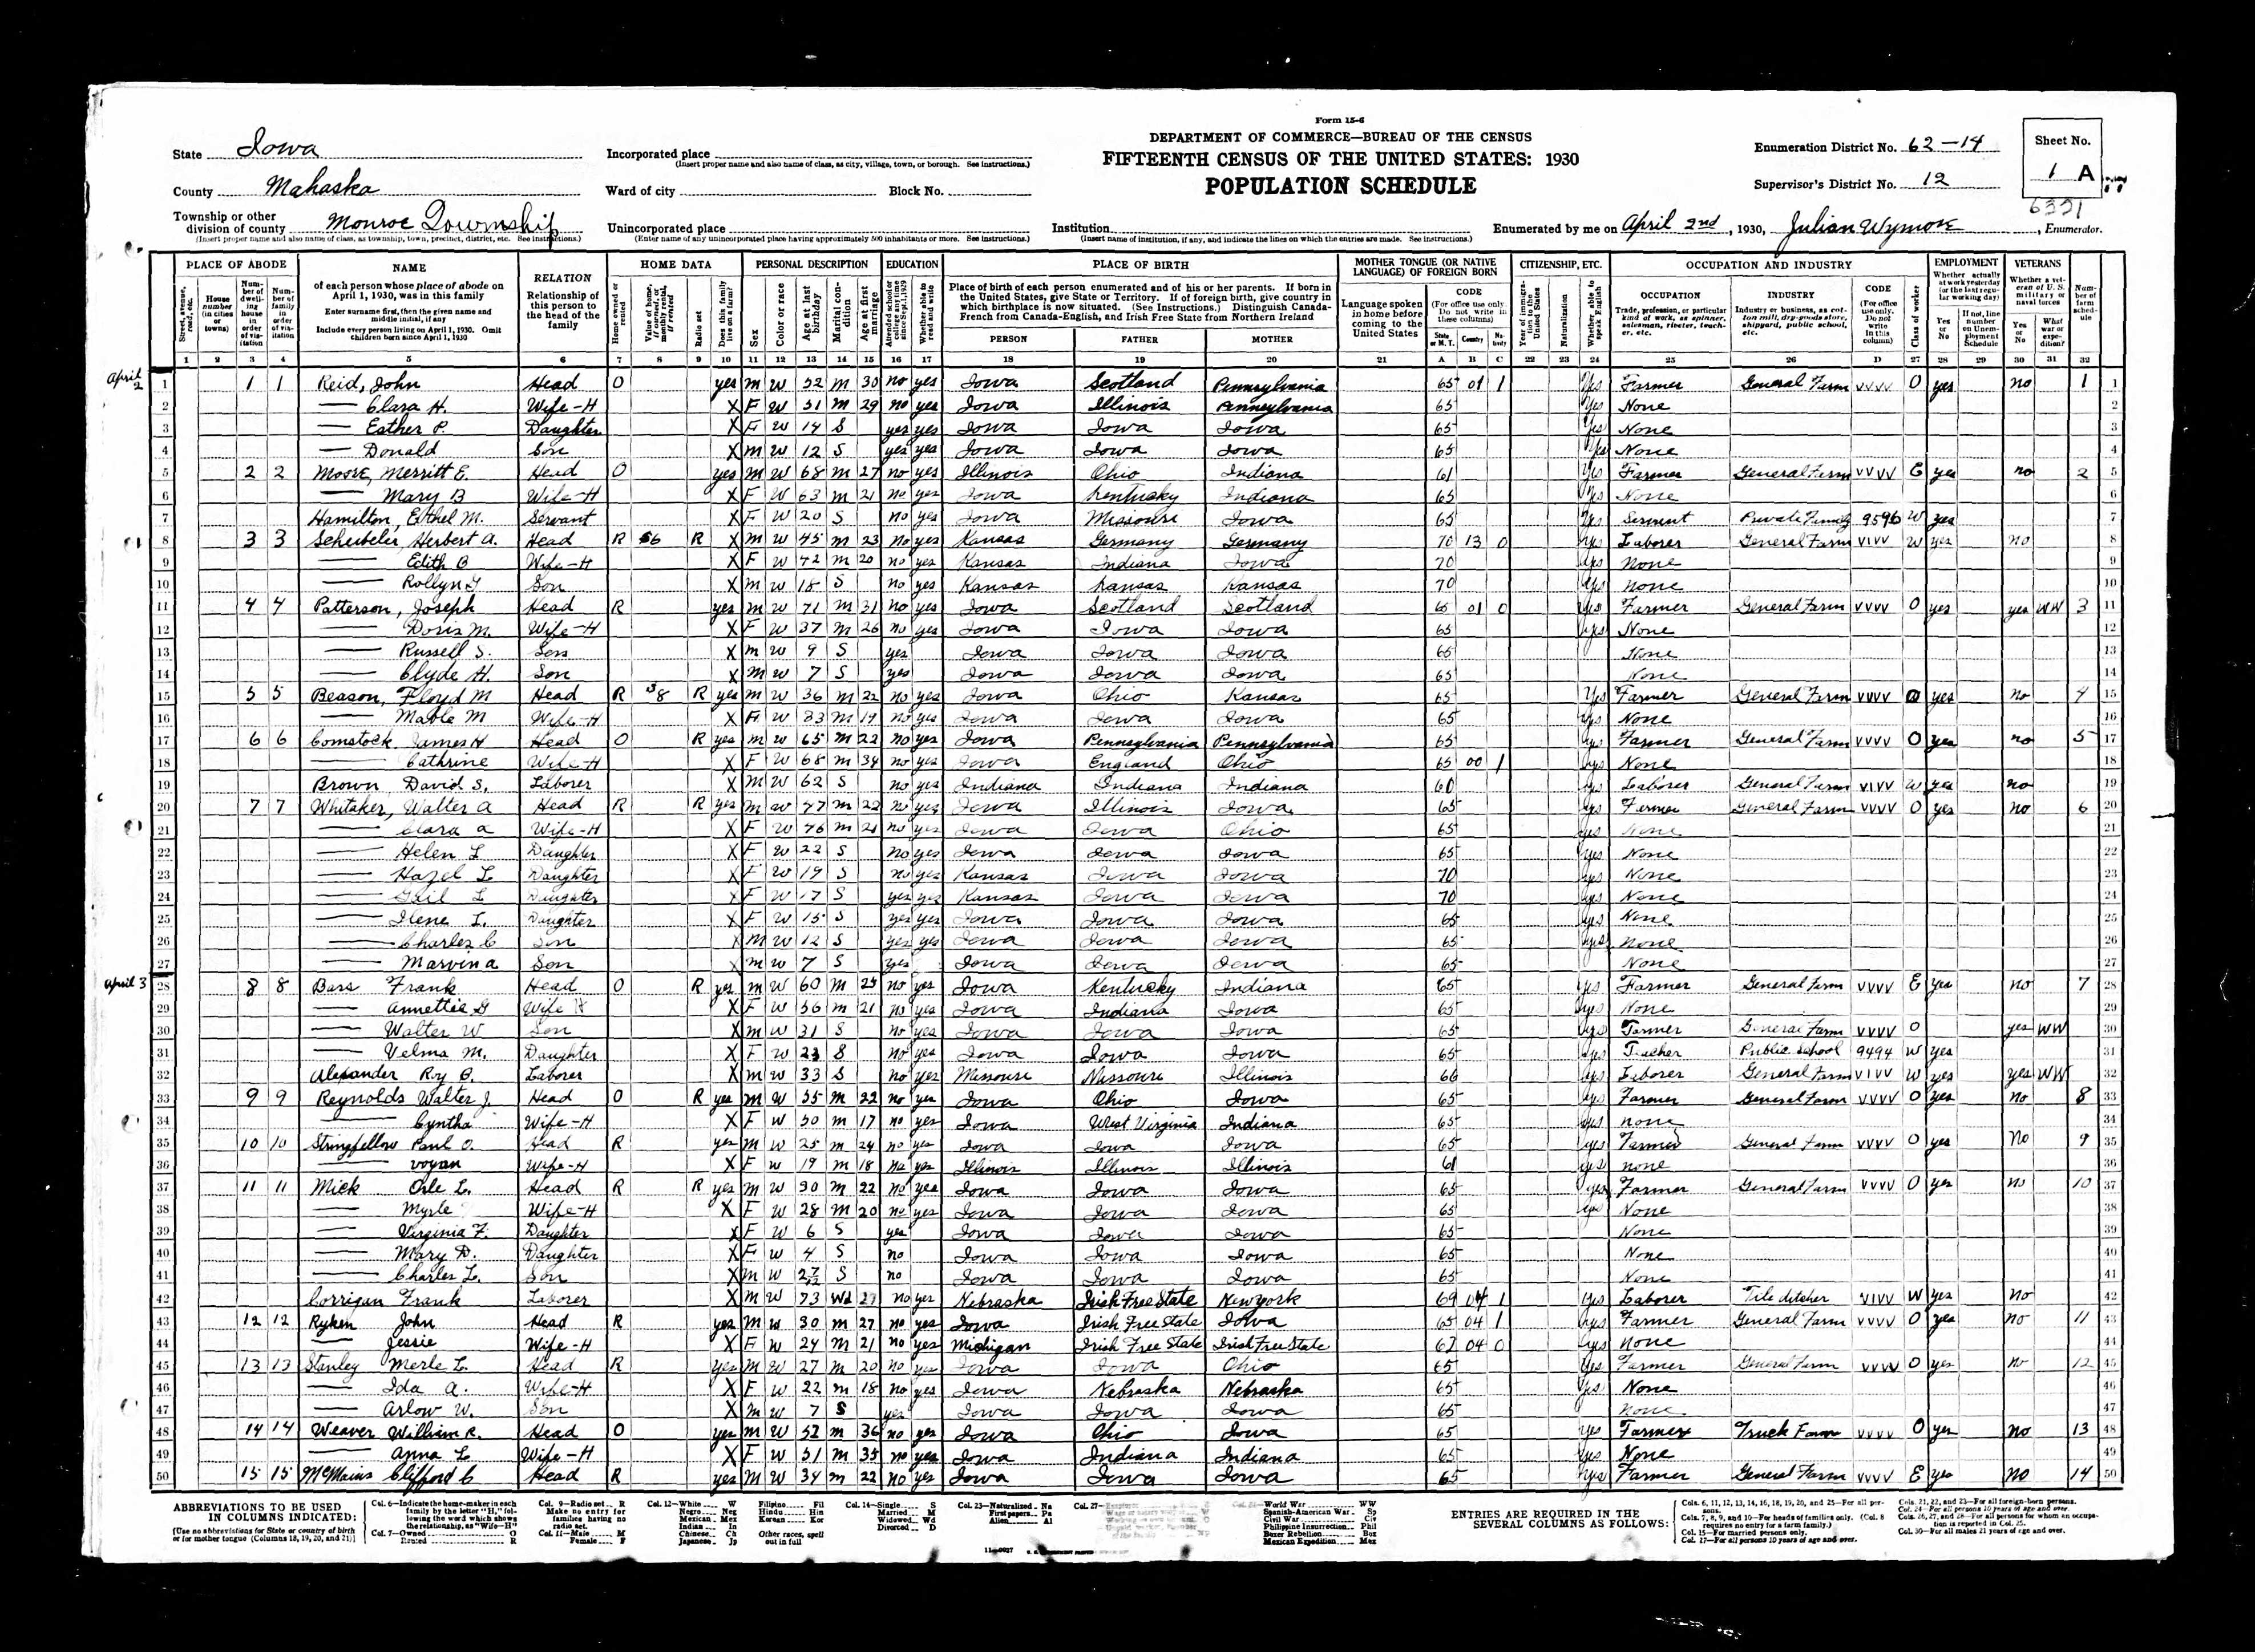 Form 15-6
DEPARTMENT OF COMMERCE—BUREAU OF THE CENSUS
FIFTEENTH CENSUS OF THE UNITED STATES: 1930
POPULATION SCHEDULE
State Iowa
County Mahaska
Township or other division of county Monroe Township
(Insert proper name and also name of class, as township, town, precinct, district, etc. See instructions.)
Incorporated place
(Insert proper name and also name of class, as city, village, town, or borough. See instructions.)
Ward of city Block No.
Unincorporated place
(Enter name of any unincorporated place having approximately 500 inhabitants or more. See instructions.)
Institution
(Insert name of institution, if any, and indicate the lines on which the entries are made. See instructions.)
Enumeration District No. 62-14
Supervisor's District No. 12
Sheet No. 1 A
Enumerated by me on April 2nd, 1930, Julian , Enumerator.
PLACE OF ABODE NAME RELATION HOME DATA PERSONAL DESCRIPTION EDUCATION PLACE OF BIRTH MOTHER TONGUE (OR NATIVE LANGUAGE) OF FOREIGN BORN CITIZENSHIP, ETC. OCCUPATION AND INDUSTRY EMPLOYMENT VETERANS
April 2
1 1 1 Reid, John Head O yes M W 52 M 30 no yes Iowa Scotland Pennsylvania 65 01 1 yes Farmer General Farm VVVV O yes no 1 1
2 — Clara H. Wife-H X F W 51 M 29 no yes Iowa Illinois Pennsylvania 65 yes None 2
3 — Esther P. Daughter X F W 14 S yes yes Iowa Iowa Iowa 65 yes None 3
4 — Donald Son X M W 12 S yes yes Iowa Iowa Iowa 65 yes None 4
5 2 2 Moore, Merritt E. Head O yes M W 68 M 27 no yes Illinois Ohio Indiana 61 yes Farmer General Farm VVVV E yes no 2 5
6 — Mary B Wife-H X F W 63 M 21 no yes Iowa Kentucky Indiana 65 yes None 6
7 Hamilton, Ethel M. Servant X F W 20 S no yes Iowa Missouri Iowa 65 yes Servant Private Family 9596 W yes 7
8 3 3 Herbert A. Head R $6 R X M W 45 M 23 no yes Kansas Germany Germany 70 13 0 yes Laborer General Farm VIVV W yes no 8
9 — Edith B Wife-H X F W 42 M 20 no yes Kansas Indiana Iowa 70 yes None 9
10 — Rollyn Son X M W 18 S no yes Kansas Kansas Kansas 70 yes None 10
11 4 4 Patterson, Joseph Head R yes M W 41 M 31 no yes Iowa Scotland Scotland 65 01 0 yes Farmer General Farm VVVV O yes yes WW 3 11
12 — Doris M. Wife-H X F W 37 M 26 no yes Iowa Iowa Iowa 65 yes None 12
13 — Russell S. Son X M W 9 S yes Iowa Iowa Iowa 65 None 13
14 — Clyde H. Son X M W 7 S yes Iowa Iowa Iowa 65 None 14
15 5 5 Beason, Floyd M Head R $8 R yes M W 36 M 22 no yes Iowa Ohio Kansas 65 yes Farmer General Farm VVVV O yes no 4 15
16 — Mable M Wife-H X F W 33 M 19 no yes Iowa Iowa Iowa 65 yes None 16
17 6 6 Comstock James H Head O R yes M W 65 M 22 no yes Iowa Pennsylvania Pennsylvania 65 yes Farmer General Farm VVVV O yes no 5 17
18 — Cathrine Wife-H X F W 68 M 34 no yes Iowa England Ohio 65 00 1 yes None 18
19 Brown David S. Laborer X M W 62 S no yes Indiana Indiana Indiana 60 yes Laborer General Farm VIVV W yes no 19
20 7 7 Whitaker, Walter A Head R R yes M W 47 M 22 no yes Iowa Illinois Iowa 65 yes Farmer General Farm VVVV O yes no 6 20
21 — Clara A Wife-H X F W 46 M 21 no yes Iowa Iowa Ohio 65 yes None 21
22 — Helen L Daughter X F W 22 S no yes Iowa Iowa Iowa 65 yes None 22
23 — Hazel L Daughter X F W 19 S no yes Kansas Iowa Iowa 70 yes None 23
24 — Gail L Daughter X F W 17 S yes yes Kansas Iowa Iowa 70 yes None 24
25 — Ilene L. Daughter X F W 15 S yes yes Iowa Iowa Iowa 65 yes None 25
26 — Charles C Son X M W 12 S yes yes Iowa Iowa Iowa 65 yes None 26
27 — Marvin A Son X M W 7 S yes Iowa Iowa Iowa 65 None 27
April 3
28 8 8 Frank Head O R yes M W 60 M 25 no yes Iowa Kentucky Indiana 65 yes Farmer General Farm VVVV E yes no 7 28
29 — Annettie G Wife H X F W 56 M 21 no yes Iowa Indiana Iowa 65 yes None 29
30 — Walter W Son X M W 31 S no yes Iowa Iowa Iowa 65 yes Farmer General Farm VVVV O yes WW 30
31 — Velma M. Daughter X F W 23 S no yes Iowa Iowa Iowa 65 yes Teacher Public School 9494 W yes 31
32 Alexander Roy B. Laborer X M W 33 S no yes Missouri Missouri Illinois 66 yes Laborer General Farm VIVV W yes yes WW 32
33 9 9 Reynolds Walter J. Head O R yes M W 55 M 22 no yes Iowa Ohio Iowa 65 yes Farmer General Farm VVVV O yes no 8 33
34 — Cyntha Wife-H X F W 50 M 17 no yes Iowa West Virginia Indiana 65 yes none 34
35 10 10 Stringfellow Paul O. Head R yes M W 25 M 24 no yes Iowa Iowa Iowa 65 yes Farmer General Farm VVVV O yes No 9 35
36 — Voyan Wife-H X F W 19 M 18 no yes Illinois Illinois Illinois 61 yes none 36
37 11 11 Mick Orle L. Head R R yes M W 30 M 22 no yes Iowa Iowa Iowa 65 yes Farmer General Farm VVVV O yes no 10 37
38 — Myrle Wife-H X F W 28 M 20 no yes Iowa Iowa Iowa 65 yes None 38
39 — Virginia F. Daughter X F W 6 S yes Iowa Iowa Iowa 65 None 39
40 — Mary D. Daughter X F W 4 S no Iowa Iowa Iowa 65 None 40
41 — Charles L. Son X M W 2 7/12 S no Iowa Iowa Iowa 65 None 41
42 Corrigan Frank Laborer X M W 73 Wd 27 no yes Nebraska Irish Free State New York 69 04 1 yes Laborer Tile ditcher VIVV W yes no 42
43 12 12 Ryken John Head R yes M W 30 M 27 no yes Iowa Irish Free State Iowa 65 04 1 yes Farmer General Farm VVVV O yes no 11 43
44 — Jessie Wife-H X F W 24 M 21 no yes Michigan Irish Free State Irish Free State 62 04 0 yes none 44
45 13 13 Stanley Merle L. Head R yes M W 27 M 20 no yes Iowa Iowa Ohio 65 yes Farmer General Farm VVVV O yes no 12 45
46 — Ida A. Wife-H X F W 22 M 18 no yes Iowa Nebraska Nebraska 65 yes None 46
47 — Arlow W. Son X M W 7 S yes Iowa Iowa Iowa 65 none 47
48 14 14 Weaver William R. Head O yes M W 52 M 36 no yes Iowa Ohio Iowa 65 yes Farmer Truck Farm VVVV O yes no 13 48
49 — Anna L Wife-H X F W 51 M 35 no yes Iowa Indiana Indiana 65 yes None 49
50 15 15 McMains Clifford C Head R yes M W 34 M 22 no yes Iowa Iowa Iowa 65 yes Farmer General Farm VVVV E yes no 14 50
ABBREVIATIONS TO BE USED IN COLUMNS INDICATED:
[Use no abbreviations for State or country of birth or for mother tongue (Columns 18, 19, 20, and 21)]
ENTRIES ARE REQUIRED IN THE SEVERAL COLUMNS AS FOLLOWS: